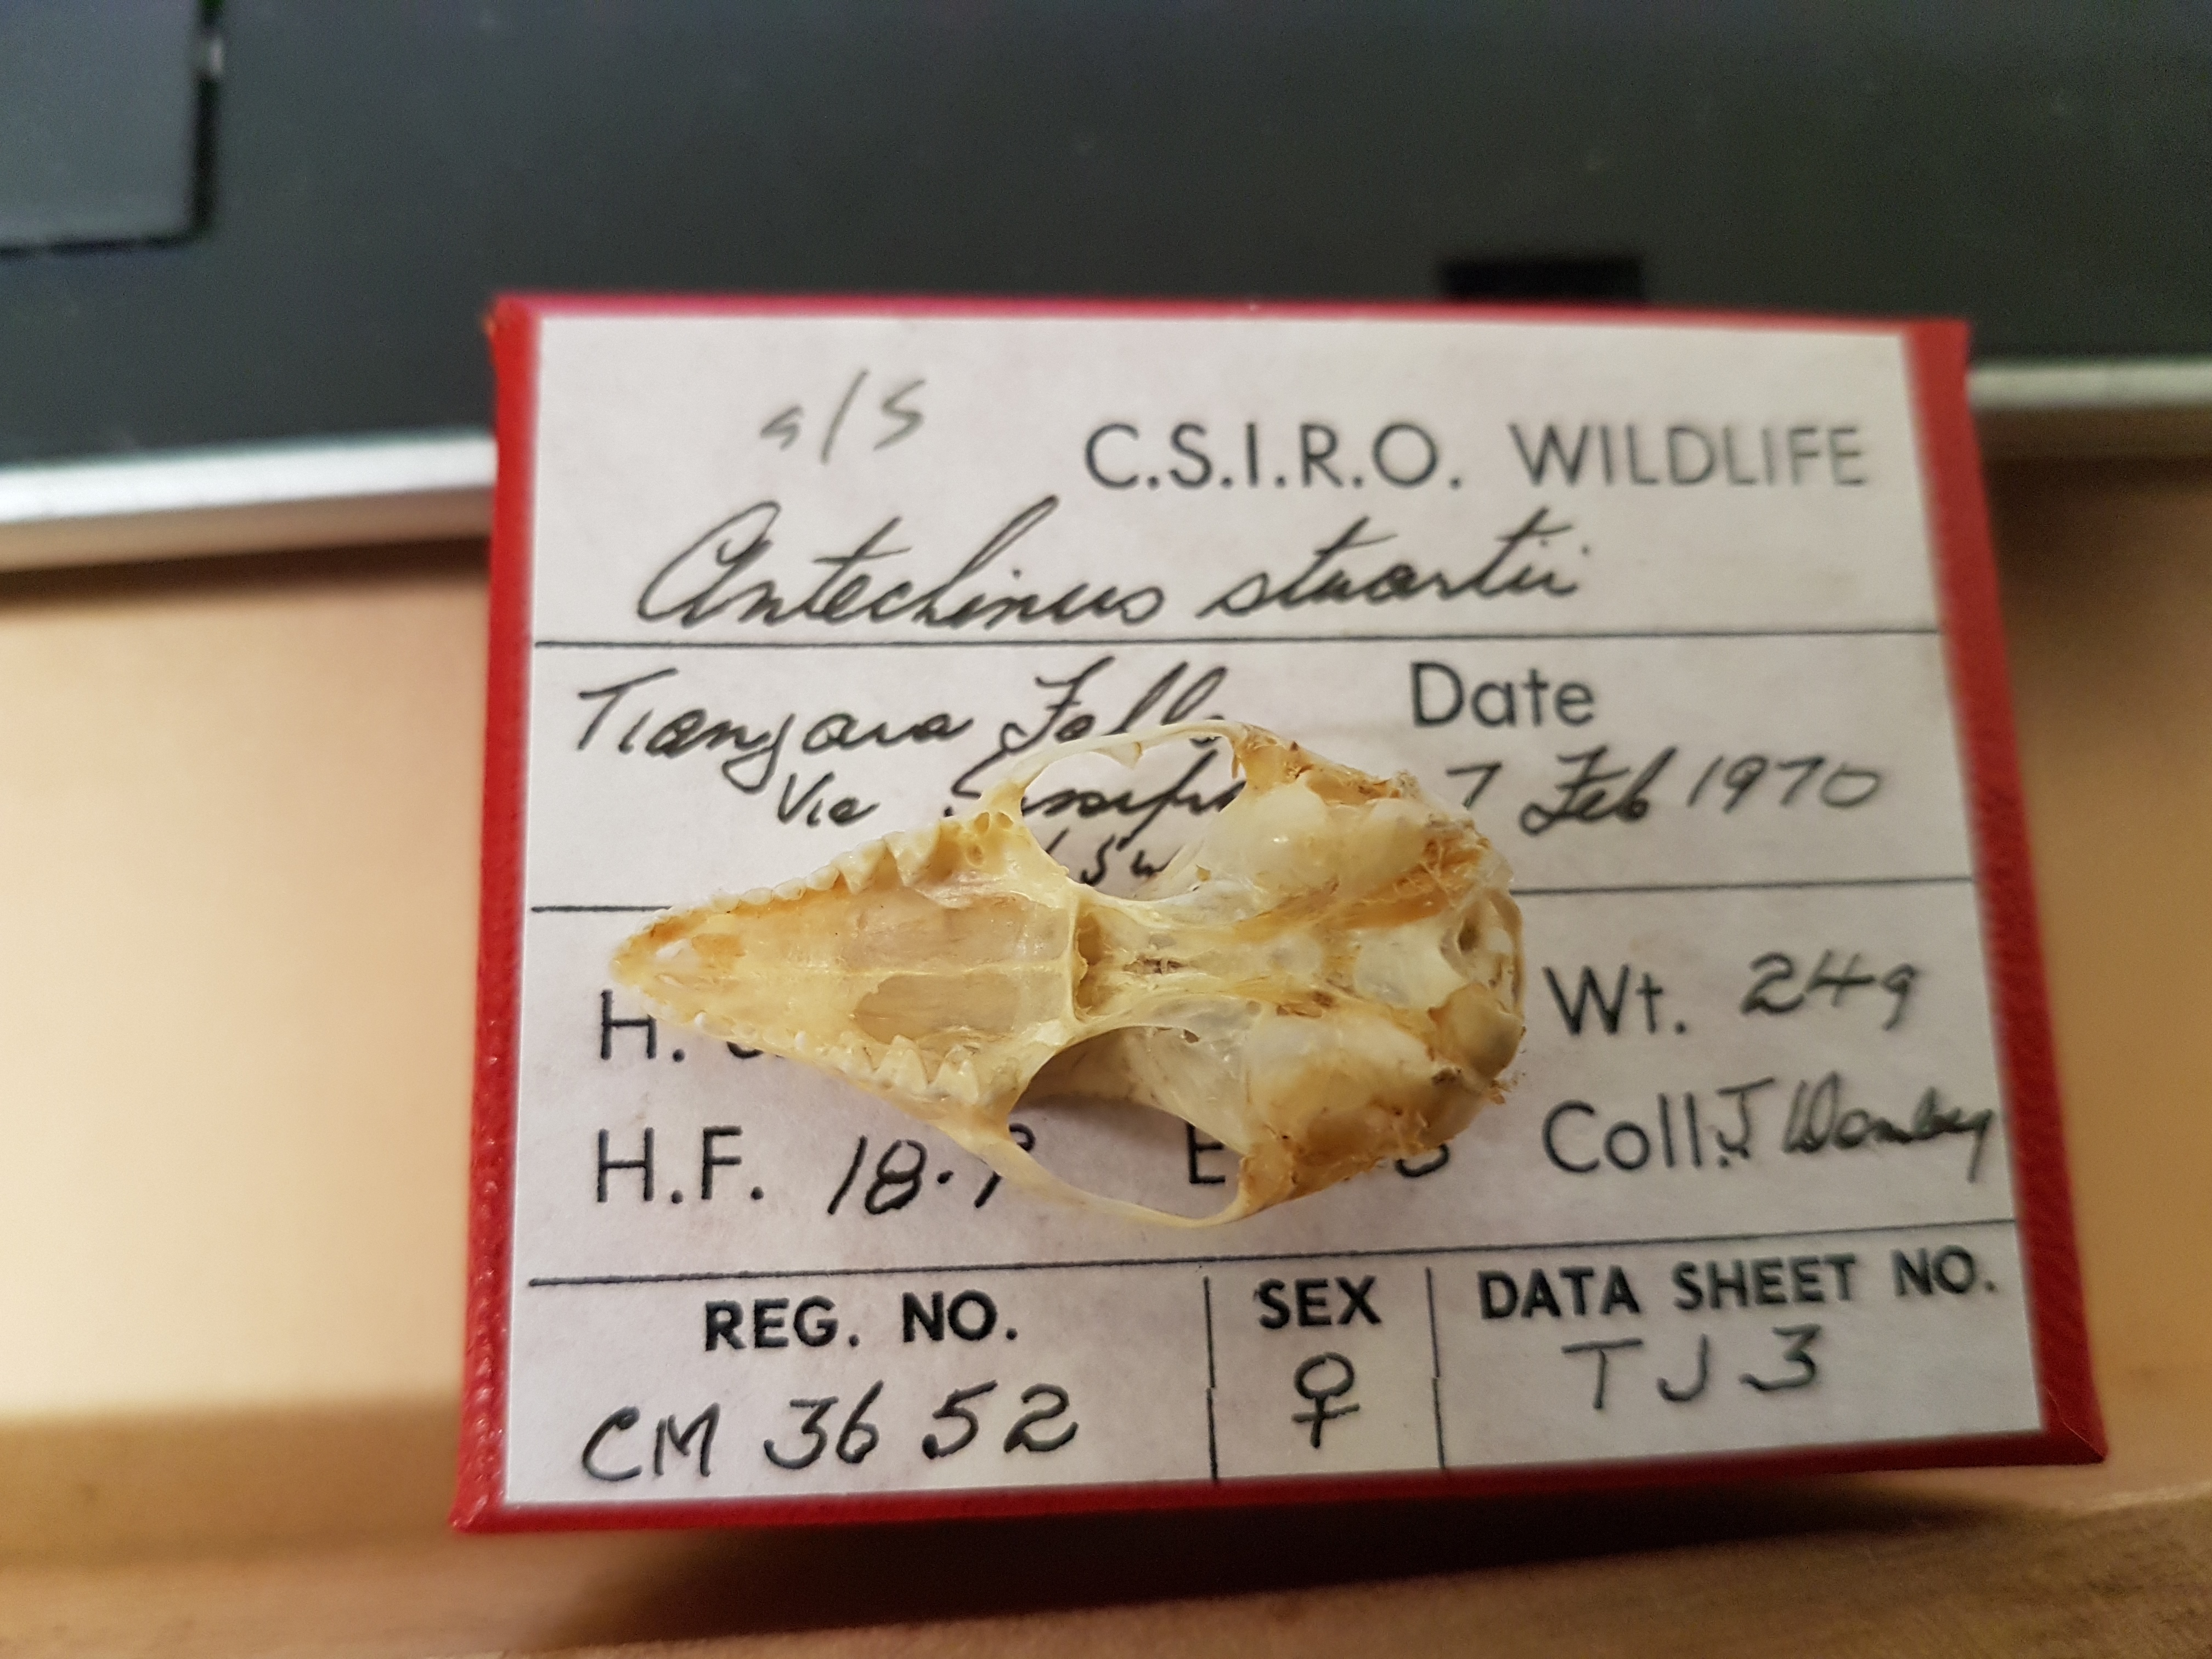 s/s
C.S.I.R.O. WILDLIFE
Antechinus stuartii
Date
Via
7 Feb 1970
H.
Wt. 24g
H.F. 18.
E
Coll. J Wamby
REG. NO.
SEX
DATA SHEET NO.
CM 3652
♀
TJ3